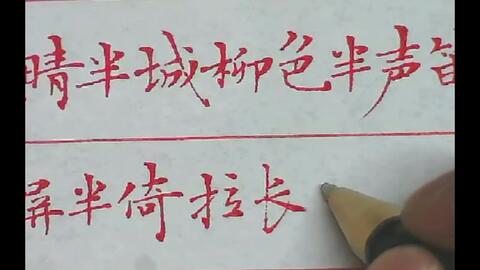 晴半城柳色半声笛
屏半倚拉长